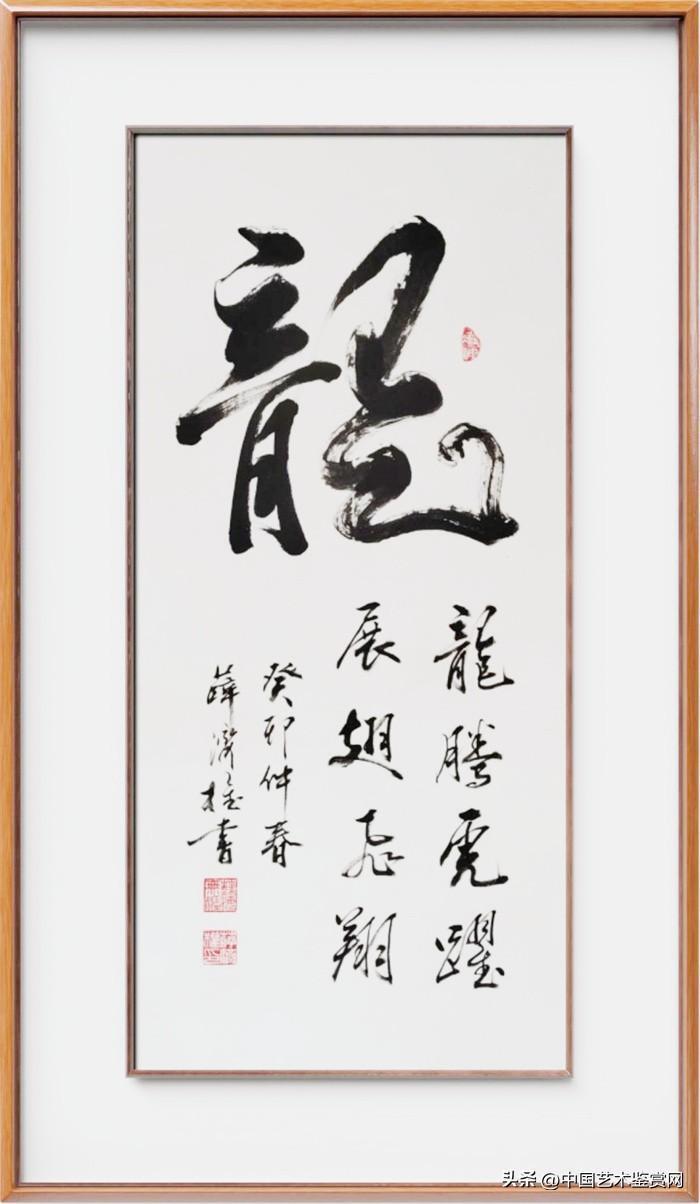 龍
龍騰虎躍
展翅飛翔
癸卯仲春
薛濟桂書
头条 @中国艺术鉴赏网